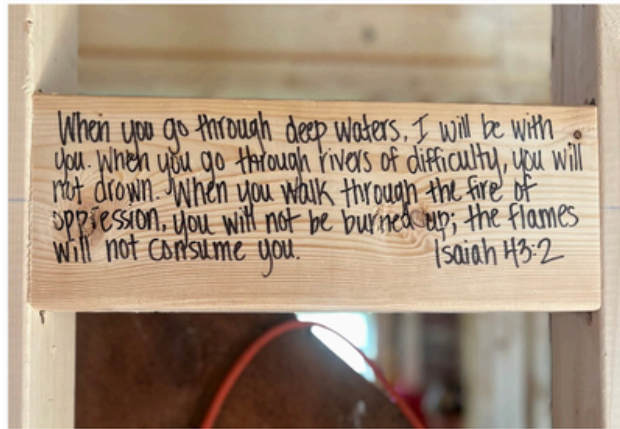 When you go through deep waters, I will be with
you. When you go through rivers of difficulty, you will
not drown. When you walk through the fire of
oppression, you will not be burned up; the flames
will not consume you. Isaiah 43:2